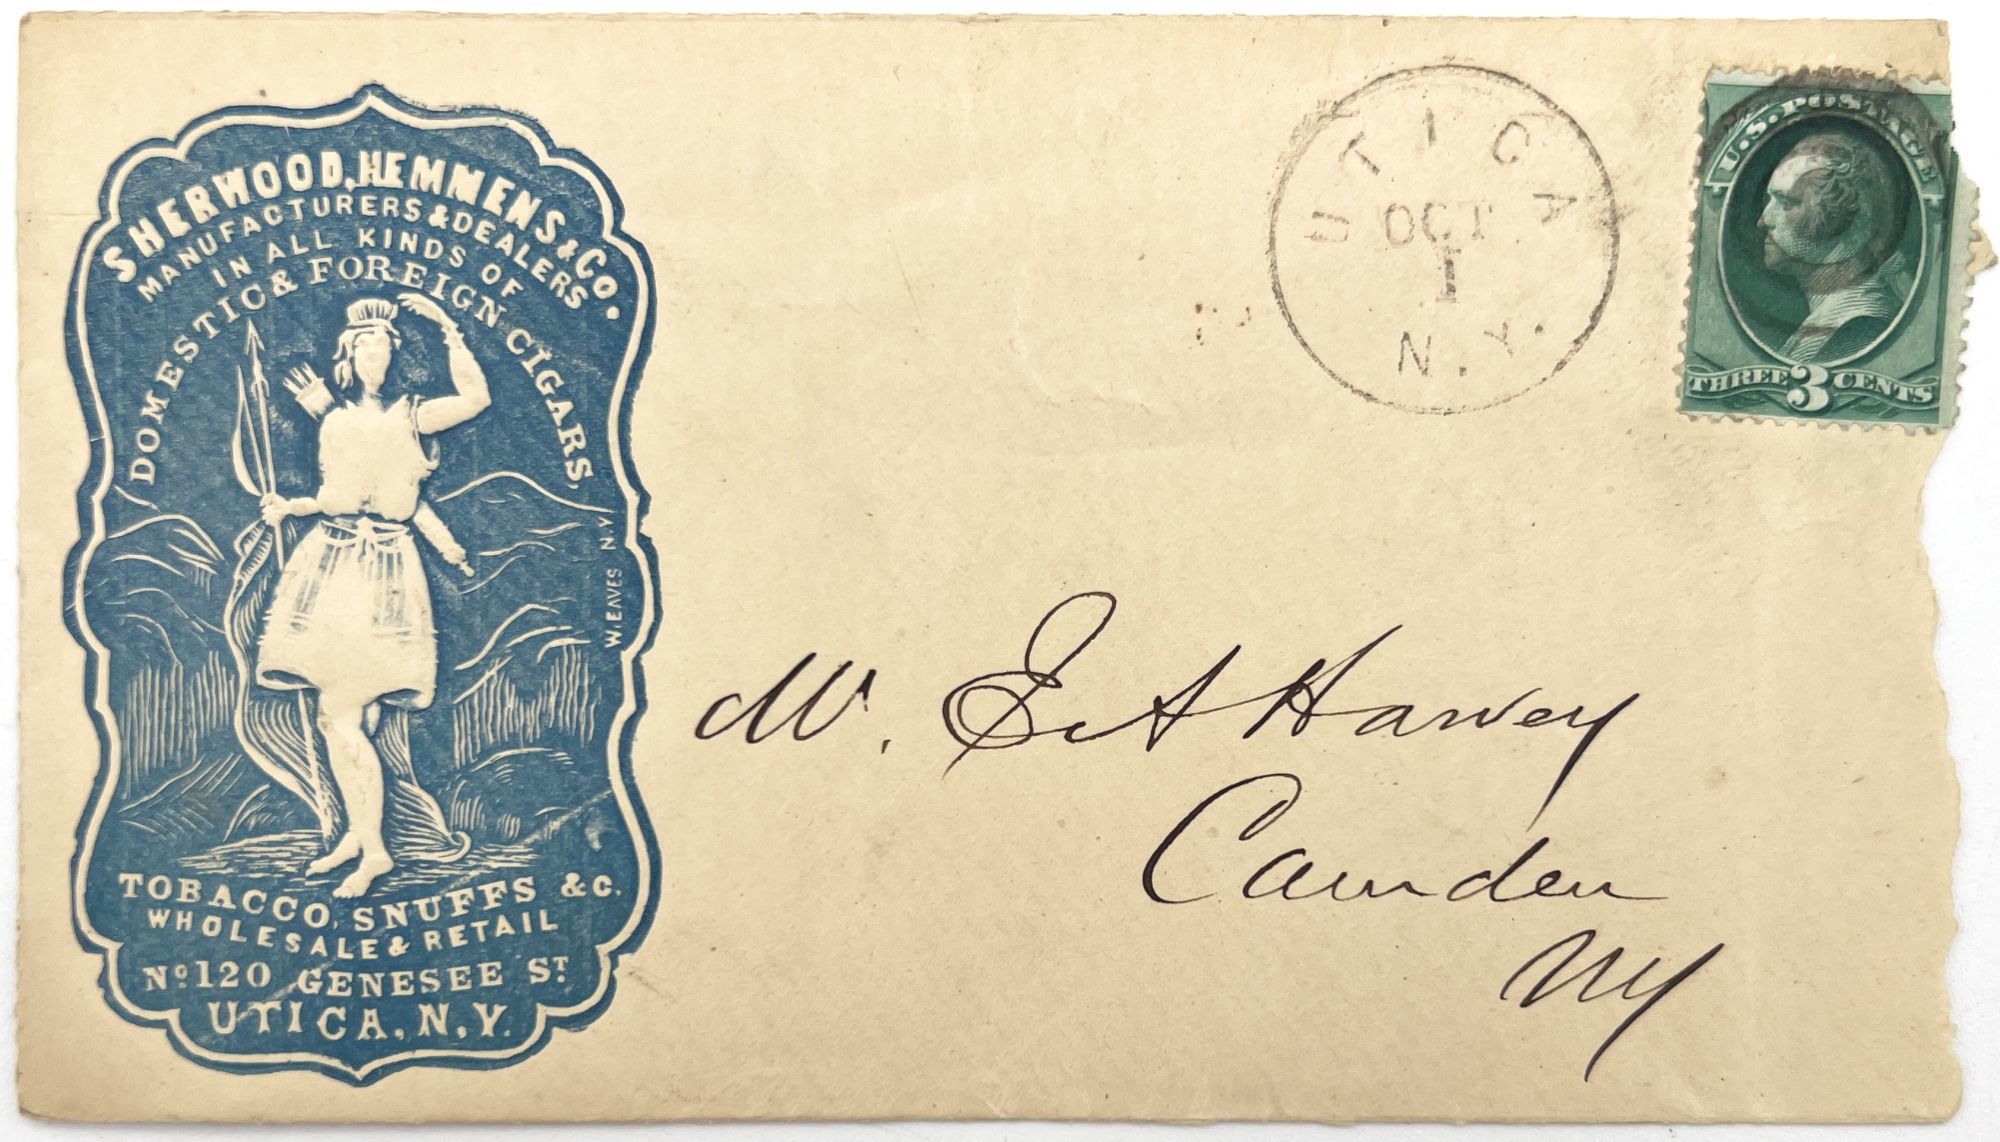 SHERWOOD, HEMMENS & CO.
MANUFACTURERS & DEALERS
IN ALL KINDS OF
DOMESTIC & FOREIGN CIGARS,
W. EAVES N.Y
TOBACCO, SNUFFS & C.
WHOLESALE & RETAIL
No 120 GENESEE ST.
UTICA, N,Y.
UTICA
OCT
1
N.Y.
U.S. POSTAGE
THREE 3 CENTS
Mr. E A Harvey
Camden
NY